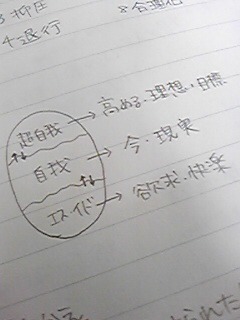 3 抑圧
8 合理化
4 退行
超自我 → 高める・理想・目標
自我 → 今・現実
エス イド → 欲求・快楽